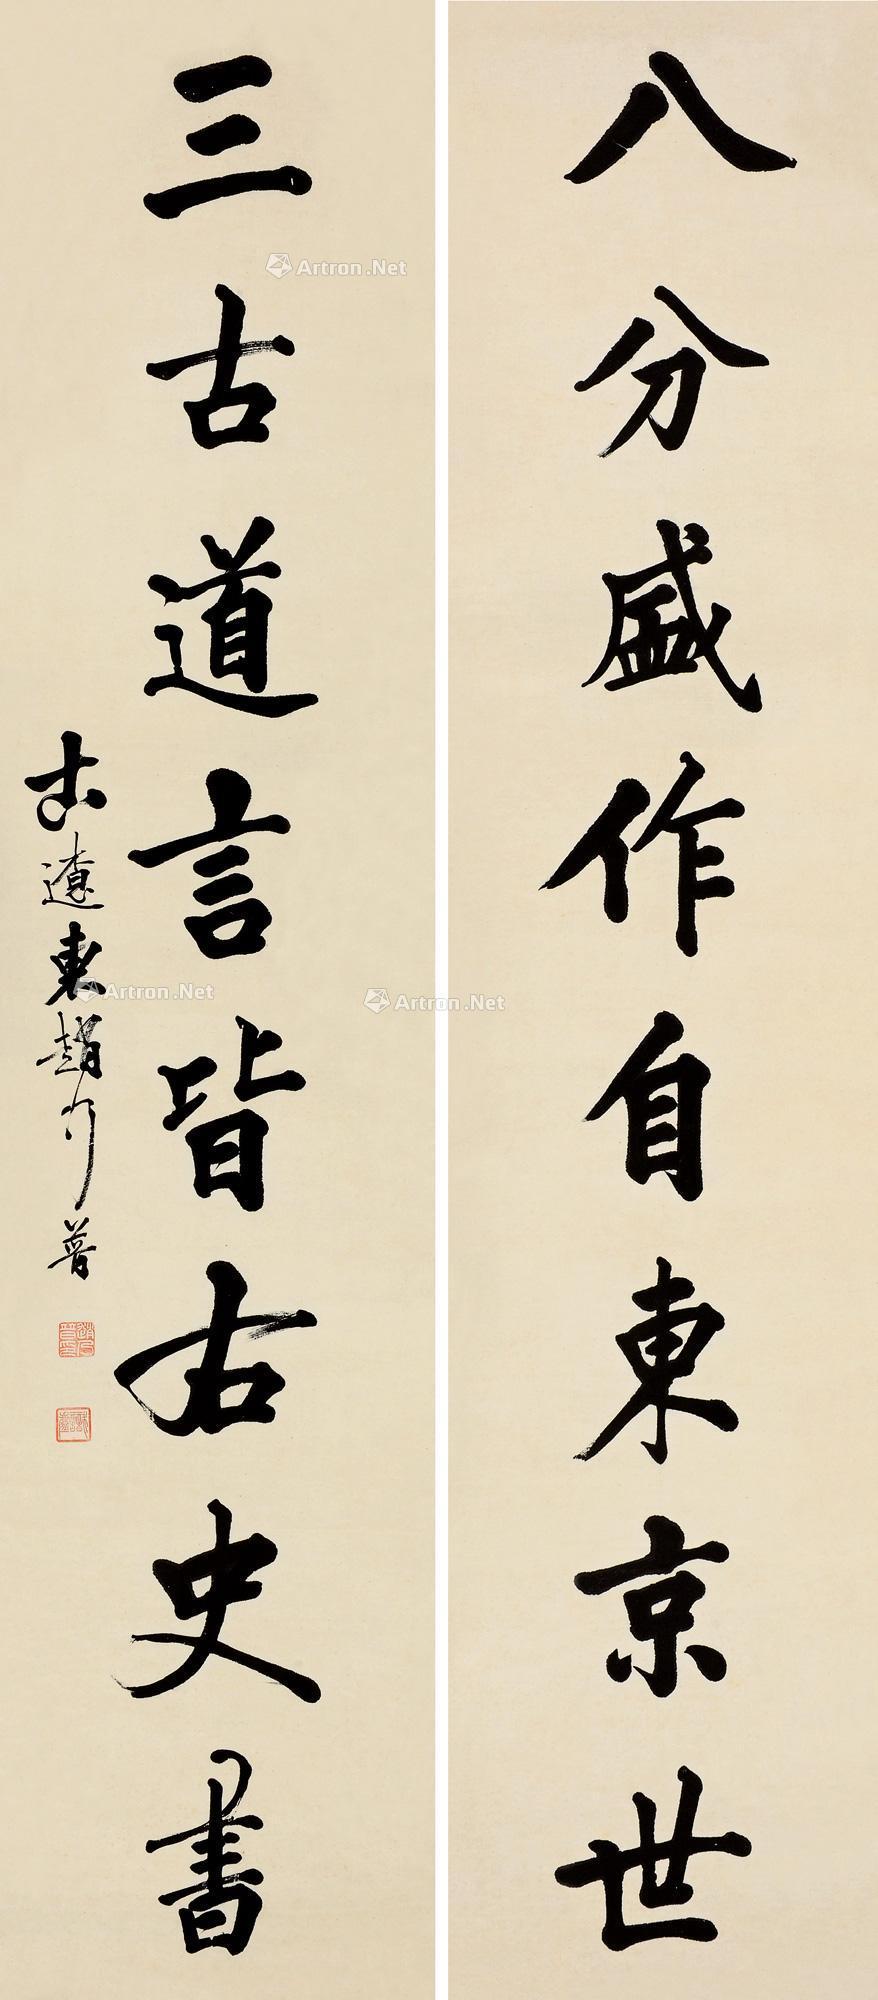 八分盛作自東京世
三古道言皆右史書
古遼東趙乃普
Artron.Net
Artron.Net
Artron.Net